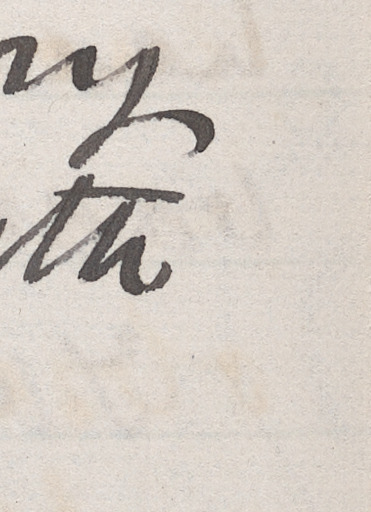 ny
th